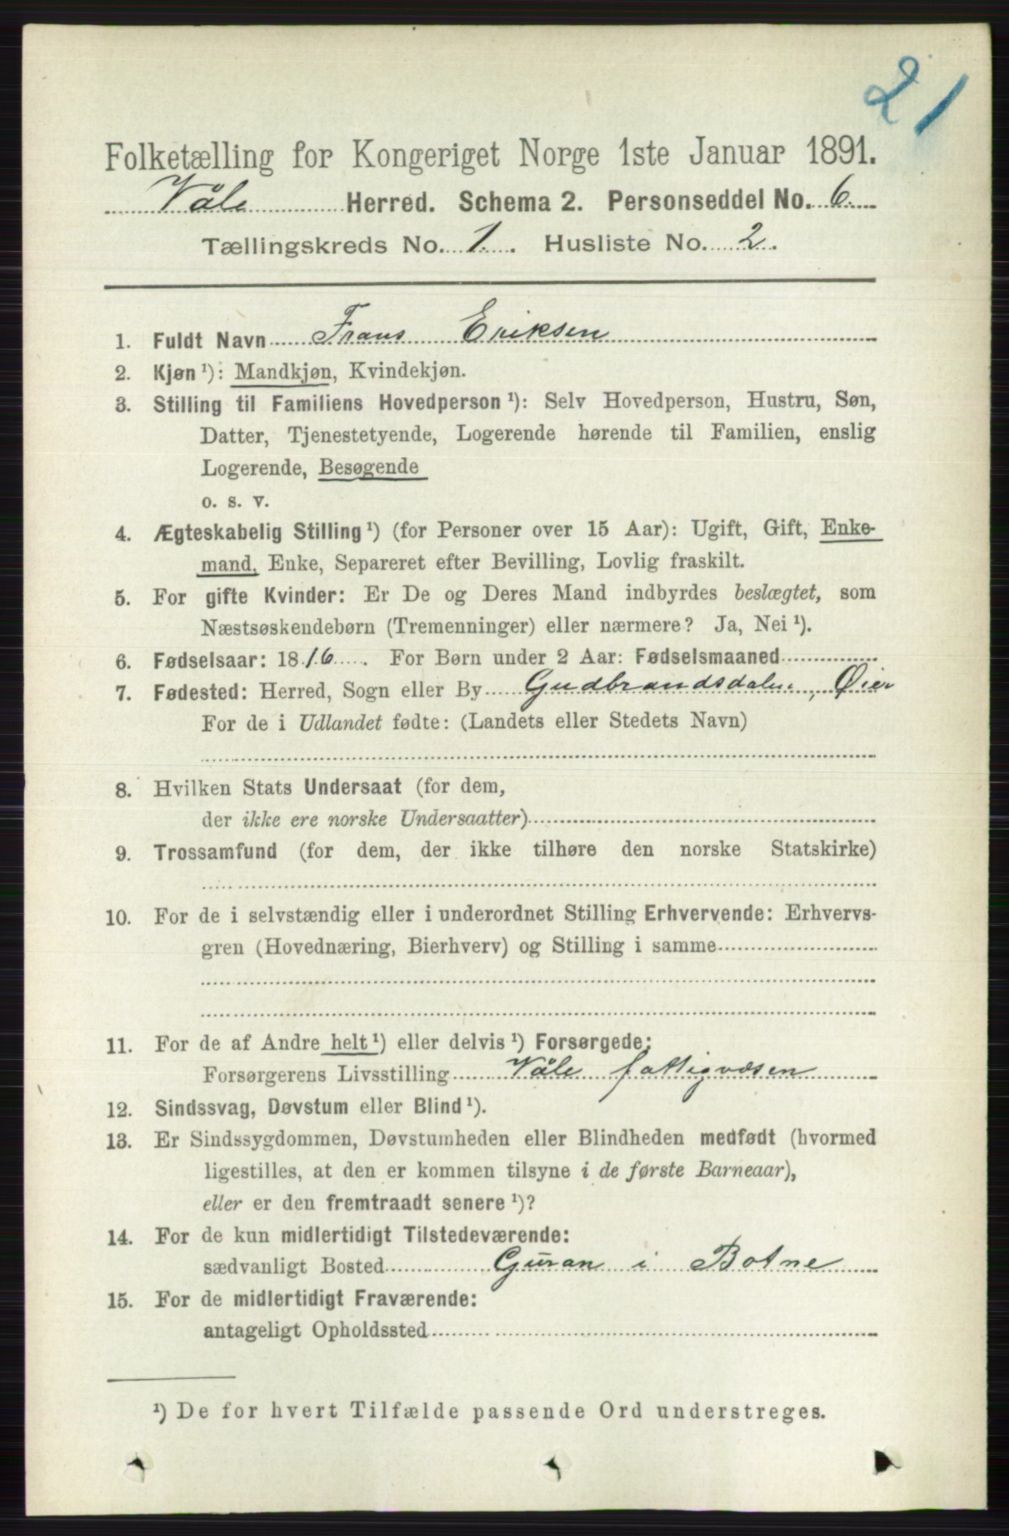 21
Folketælling for Kongeriget Norge 1ste Januar 1891.
Våle Herred. Schema 2. Personseddel No. 6
Tællingskreds No. 1. Husliste No. 2.
1. Fuldt Navn Frans Eriksen
2. Kjøn ¹): Mandkjøn, Kvindekjøn.
3. Stilling til Familiens Hovedperson ¹): Selv Hovedperson, Hustru, Søn,
Datter, Tjenestetyende, Logerende hørende til Familien, enslig
Logerende, Besøgende
o. s. v.
4. Ægteskabelig Stilling ¹) (for Personer over 15 Aar): Ugift, Gift, Enke-
mand, Enke, Separeret efter Bevilling, Lovlig fraskilt.
5. For gifte Kvinder: Er De og Deres Mand indbyrdes beslægtet, som
Næstsøskendebørn (Tremenninger) eller nærmere? Ja, Nei ¹).
6. Fødselsaar: 1816. For Børn under 2 Aar: Fødselsmaaned
7. Fødested: Herred, Sogn eller By Gudbrandsdalen, Øier
For de i Udlandet fødte: (Landets eller Stedets Navn)
8. Hvilken Stats Undersaat (for dem,
der ikke ere norske Undersaatter)
9. Trossamfund (for dem, der ikke tilhøre den norske Statskirke)
10. For de i selvstændig eller i underordnet Stilling Erhvervende: Erhvervs-
gren (Hovednæring, Bierhverv) og Stilling i samme
11. For de af Andre helt ¹) eller delvis ¹) Forsørgede:
Forsørgerens Livsstilling Våle fattigvæsen
12. Sindssvag, Døvstum eller Blind ¹).
13. Er Sindssygdommen, Døvstumheden eller Blindheden medfødt (hvormed
ligestilles, at den er kommen tilsyne i de første Barneaar),
eller er den fremtraadt senere ¹)?
14. For de kun midlertidigt Tilstedeværende:
sædvanligt Bosted Guran i Botne
15. For de midlertidigt Fraværende:
antageligt Opholdssted
¹) De for hvert Tilfælde passende Ord understreges.